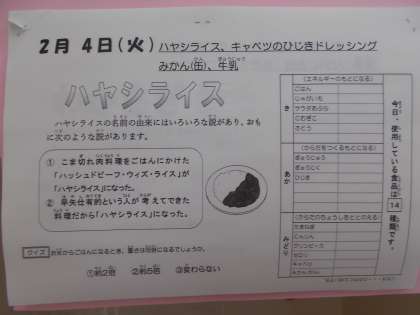 2月 4日(火) ハヤシライス、キャベツのひじきドレッシング
みかん(缶)、牛乳
ハヤシライス
ハヤシライスの名前の由来にはいろいろな説があり、おも
に次のような説があります。
① こま切れ肉料理をごはんにかけた
「ハッシュドビーフ・ウィズ・ライス」が
「ハヤシライス」になった。
② 早矢仕有的という人が考えてできた
料理だから「ハヤシライス」になった。
クイズ お米からごはんになるとき、重さは何倍になるでしょうか。
①約2倍 ②約5倍 ③変わらない
(エネルギーのもとになる)
き
ごはん
じゃがいも
サラダあぶら
こむぎこ
さとう
(からだをつくるもとになる)
あか
ぎゅうにゅう
ぎゅうにく
ひじき
(からだのちょうしをととのえる)
みどり
たまねぎ
にんじん
グリンピース
セロリ
キャベツ
みかんかん
今日、使用している食品は
14
種類です。